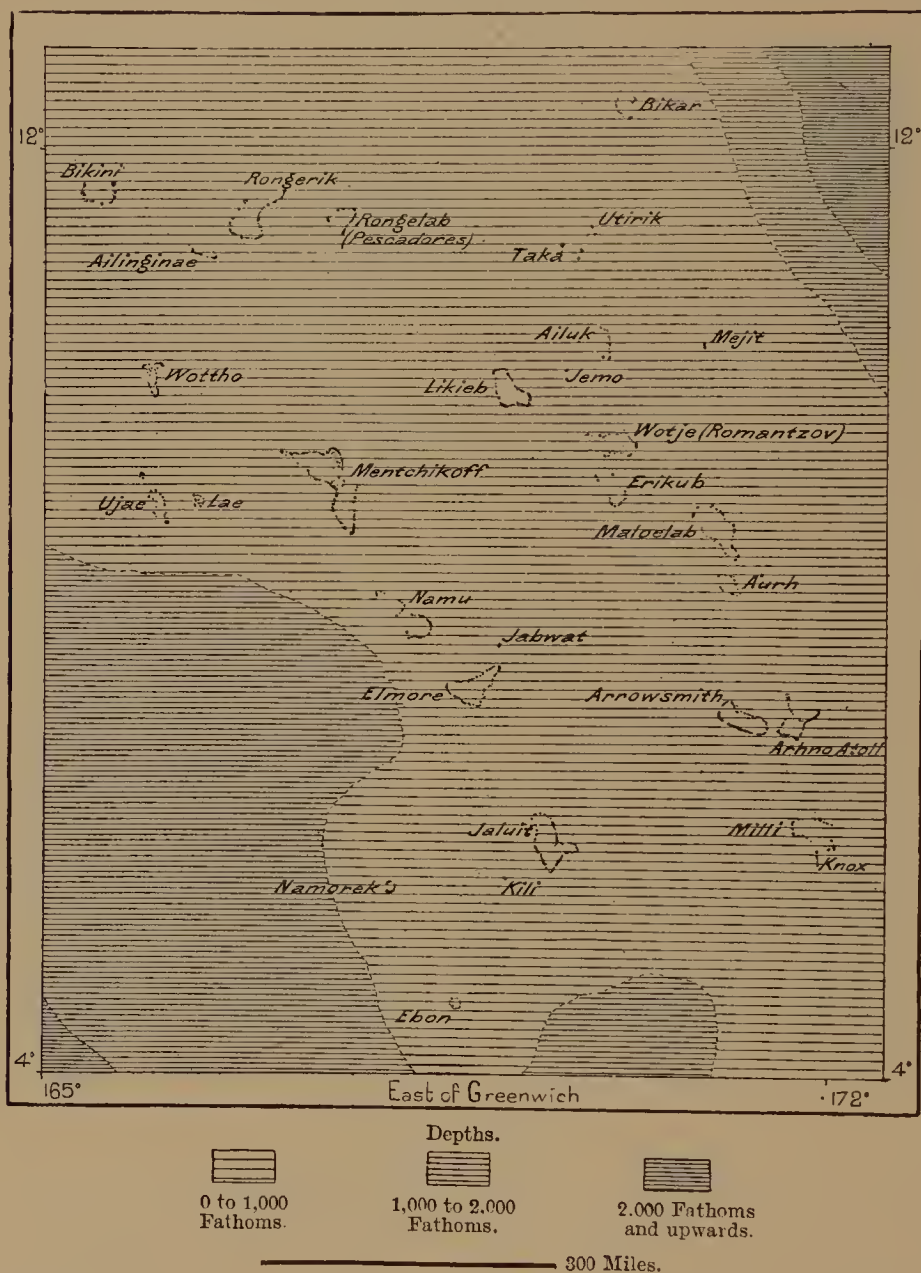 Bikar
12° 12°
Bikini
Rongerik
Rongelab
(Pescadores)
Utirik
Ailinginae
Taka
Ailuk
Mejit
Wottho
Likieb
Jemo
Wotje (Romantzov)
Mentchikoff
Erikub
Ujae
Lae
Maloelab
Aurh
Namu
Jabwat
Elmore
Arrowsmith
Arhno Atoll
Jaluit
Milli
Knox
Namorek
Kili
Ebon
4° 4°
165° East of Greenwich 172°
Depths.
0 to 1,000
Fathoms.
1,000 to 2.000
Fathoms.
2.000 Fathoms
and upwards.
300 Miles.